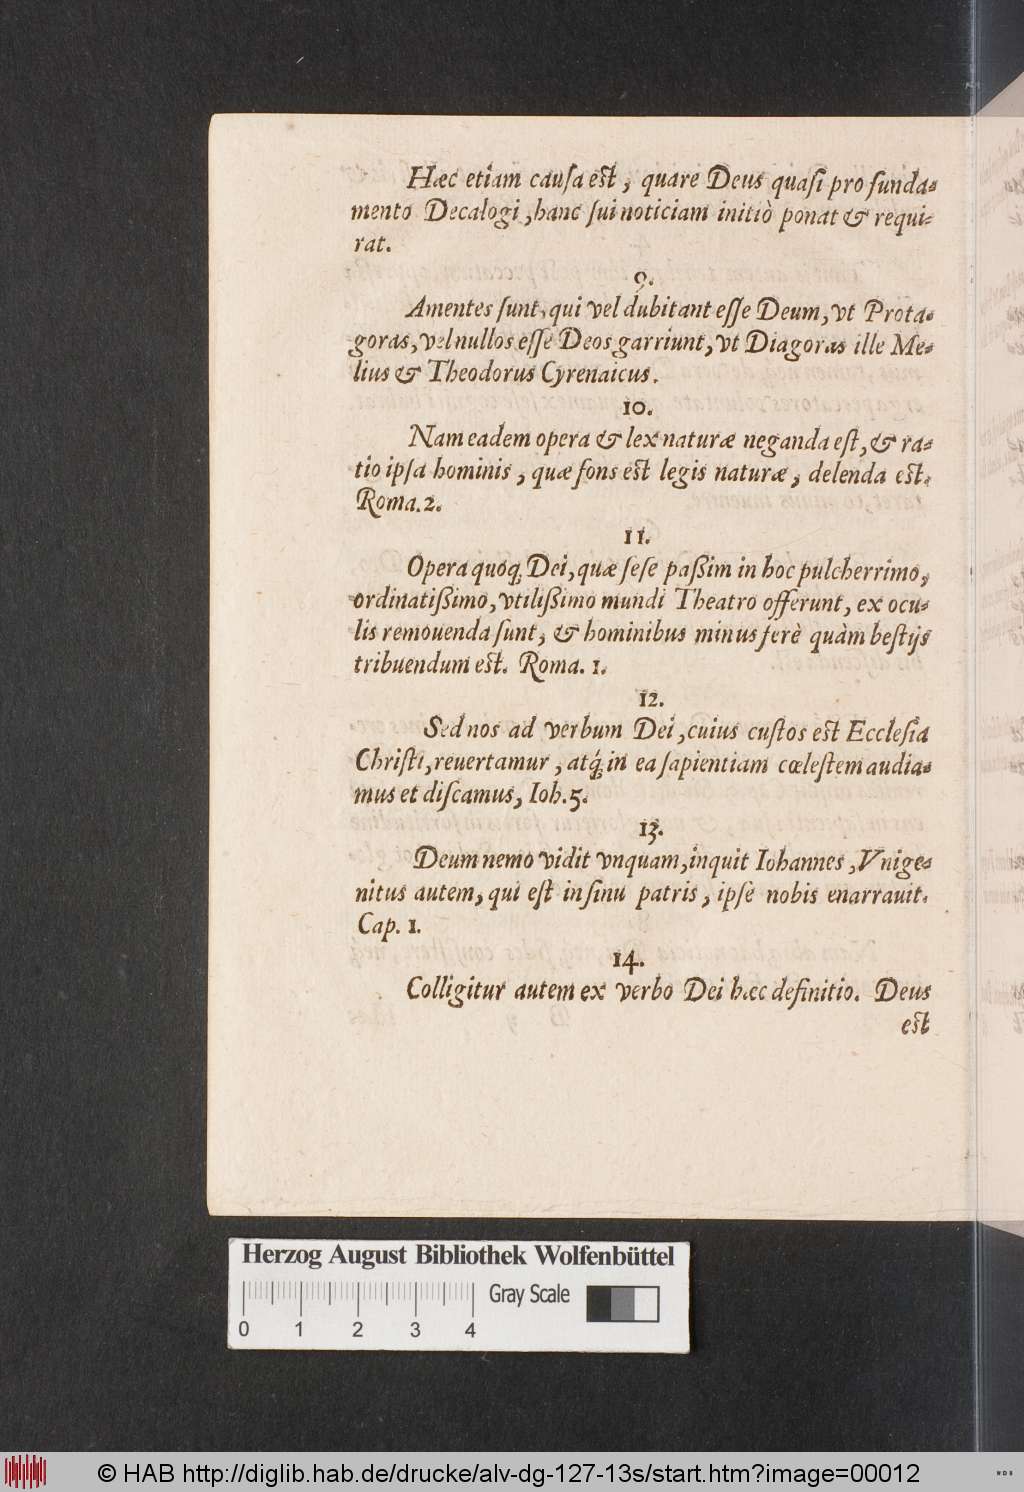 Hæc etiam causa est, quare Deus quasi pro funda-
mento Decalogi, hanc sui noticiam initiò ponat & requi-
rat.
9.
Amentes sunt, qui vel dubitant esse Deum, vt Prota-
goras, vel nullos esse Deos garriunt, vt Diagoras ille Me-
lius & Theodorus Cyrenaicus.
10.
Nam eadem opera & lex naturæ neganda est, & ra-
tio ipsa hominis, quæ fons est legis naturæ, delenda est.
Roma. 2.
11.
Opera quoq; Dei, quæ sese paßim in hoc pulcherrimo,
ordinatißimo, vtilißimo mundi Theatro offerunt, ex ocu-
lis remouenda sunt, & hominibus minus ferè quàm bestijs
tribuendum est. Roma. 1.
12.
Sed nos ad verbum Dei, cuius custos est Ecclesia
Christi, reuertamur, atq; in ea sapientiam cœlestem audia-
mus et discamus, Ioh. 5.
13.
Deum nemo vidit vnquam, inquit Iohannes, Vnige-
nitus autem, qui est in sinu patris, ipse nobis enarrauit.
Cap. 1.
14.
Colligitur autem ex verbo Dei hæc definitio. Deus
est
Herzog August Bibliothek Wolfenbüttel
0 1 2 3 4
Gray Scale
© HAB http://diglib.hab.de/drucke/alv-dg-127-13s/start.htm?image=00012